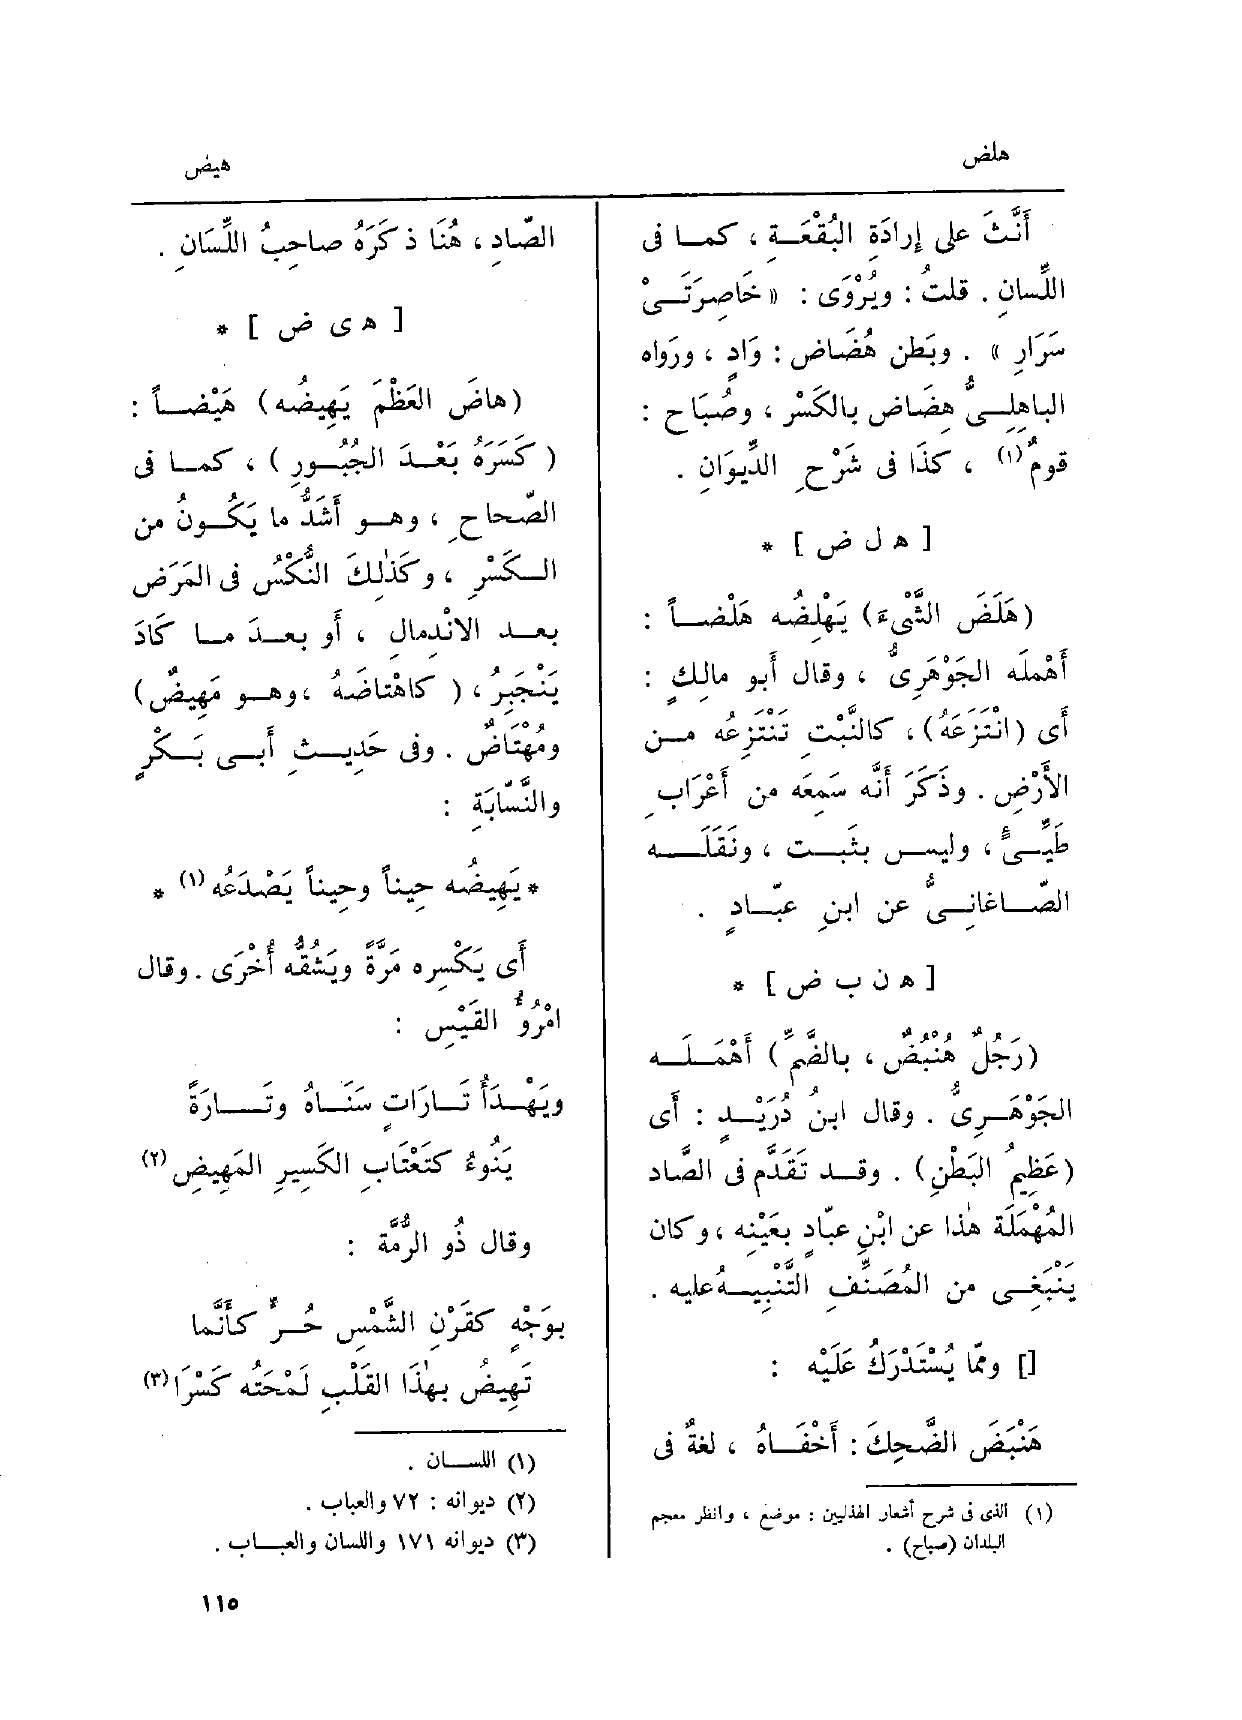 هلض
هيض
أَنَّثَ على إِرادَةِ البُقْعَةِ ، كما فى
اللِّسانِ . قلتُ : ويُرْوَى : « خَاصِرَتَىْ
سَرَارِ » . وبَطن هُضَاض : وَادٍ ، ورَواه
الباهِلِىُّ هِضَاض بالكَسْر ، وصُبَاح :
قومٌ (١) ، كذَا فى شَرْحِ الدِّيوَانِ .
[ ه ل ض ] *
(هَلَضَ الشَّىْءَ) يَهْلِضُه هَلْضاً :
أَهْمله الجَوْهَرِىُّ ، وقال أَبو مالِكٍ :
أَى (انْتَزعَهُ) ، كالنَّبْتِ تَنْتَزِعُه من
الأَرْضِ . وذَكَرَ أَنَّه سَمِعَه من أَعْرَابِ
طَيِّىءٍ ، وليس بثَبت ، ونَقَلَه
الصّاغانِىُّ عن ابنِ عبّادٍ .
[ ه ن ب ض ] *
(رَجُلٌ هُنْبُضٌ ، بالضَّمِّ) أَهْمَلَه
الجَوْهَرِىُّ . وقال ابنُ دُرَيْدٍ : أَى
(عَظِيمُ البَطْنِ) . وقد تَقَدَّم فى الصّاد
المُهْمَلَة هٰذا عن ابْنِ عبّادٍ بعَيْنِه ، وكان
يَنْبَغِى من المُصَنِّفِ التَّنْبِيهُ عليه .
[] ومّما يُسْتَدْرَكُ عَلَيْه :
هَنْبَضَ الضَّحِكَ : أَخْفَاهُ ، لغةٌ فى
(١) الذى فى شرح أشعار الهذليين : موضع ، وانظر معجم
البلدان (صباح) .
الصّادِ ، هُنَا ذَكَرَهُ صاحِبُ اللِّسَانِ .
[ ه ى ض ] *
(هاضَ العَظْمَ يَهِيضُه) هَيْضاً :
( كَسَرَهُ بَعْدَ الجُبُورِ ) ، كما فى
الصّحاحِ ، وهو أَشَدُّ ما يَكُونُ من
الكَسْرِ ، وكَذٰلِكَ النُّكْسُ فى المَرَضِ
بعد الانْدِمالِ ، أَو بعدَ ما كَادَ
يَنْجَبِرُ ، ( كاهْتاضَهُ ، وهو مَهِيضٌ)
ومُهْتَاضٌ . وفى حَدِيثِ أَبى بَكْرٍ
والنَّسّابَةِ :
* يَهِيضُه حِيناً وحِيناً يَصْدَعُه (١) *
أَى يَكْسِره مَرَّةً ويَشُقُّه أُخْرَى . وقال
امْرُؤُ القَيْسِ :
ويَهْدَأُ تَارَاتٍ سَنَاهُ وتَارَةً
يَنُوءُ كتَعْتَابِ الكَسِيرِ المَهِيضِ (٢)
وقال ذُو الرُّمَّة :
بوَجْهٍ كقَرْنِ الشَّمْسِ حُرٍّ كأَنَّما
تَهِيضُ بهٰذَا القَلْبِ لَمْحَتُه كَسْرَا (٣)
(١) اللسان .
(٢) ديوانه : ٧٢ والعباب .
(٣) ديوانه ١٧١ واللسان والعباب .
١١٥